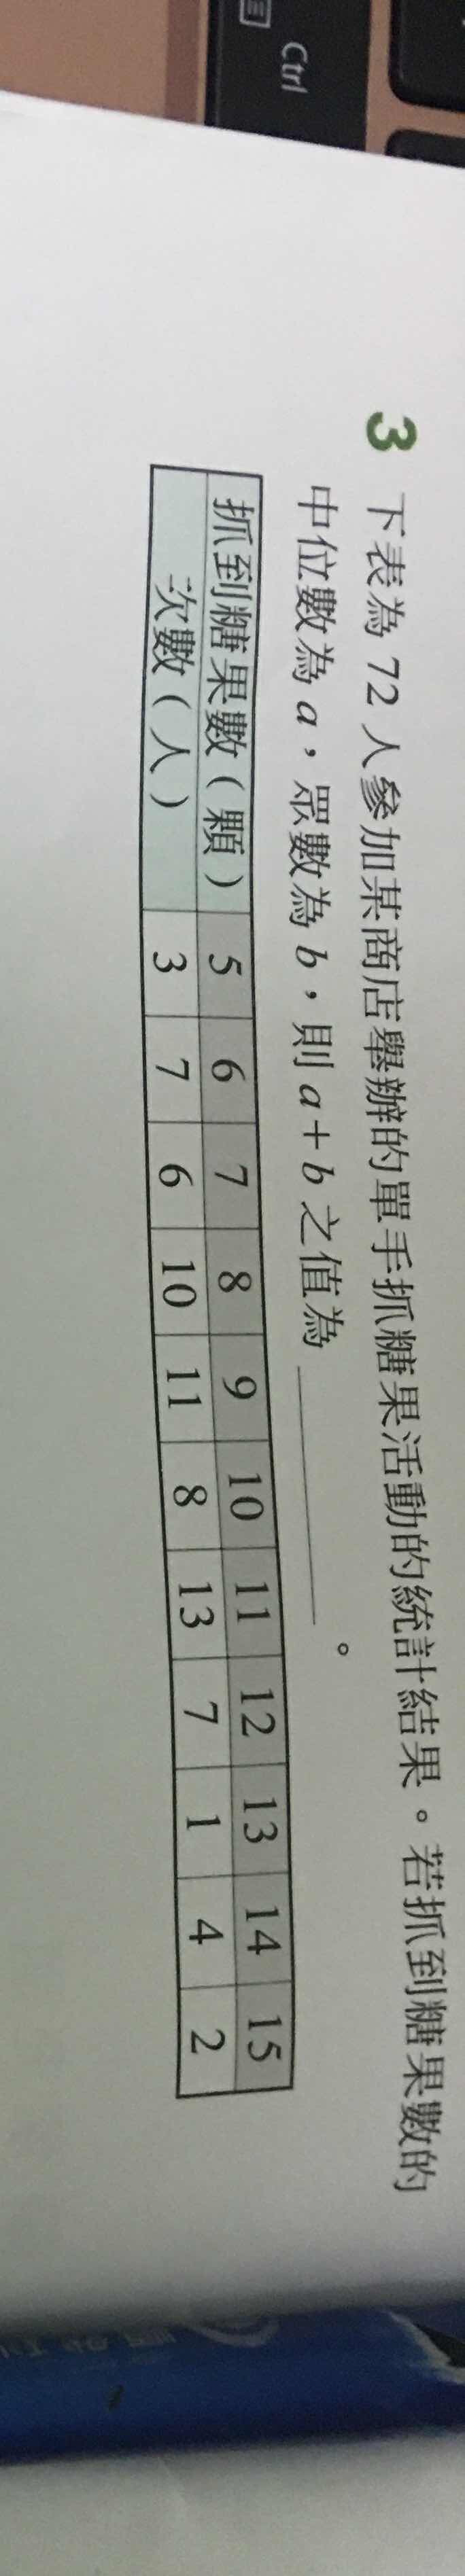 Ctrl
3 下表為 72 人參加某商店舉辦的單手抓糖果活動的統計結果。若抓到糖果數的
中位數為 a，眾數為 b，則 a+b 之值為 ________。
抓到糖果數（顆） 5 6 7 8 9 10 11 12 13 14 15
次數（人） 3 7 6 10 11 8 13 7 1 4 2